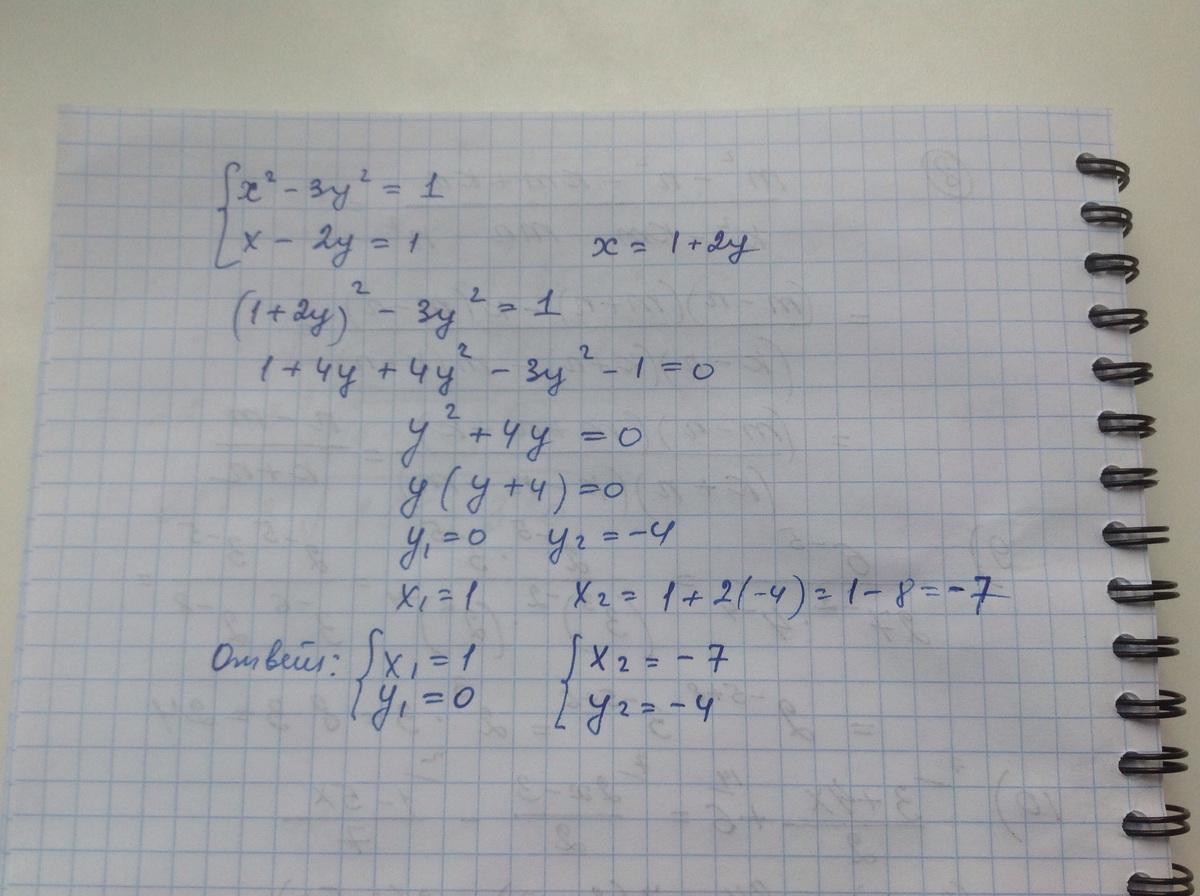 { x² - 3y² = 1
x - 2y = 1 x = 1 + 2y
(1 + 2y)² - 3y² = 1
1 + 4y + 4y² - 3y² - 1 = 0
y² + 4y = 0
y(y + 4) = 0
y₁ = 0 y₂ = -4
x₁ = 1 x₂ = 1 + 2(-4) = 1 - 8 = -7
Ответ: { x₁ = 1 { x₂ = -7
y₁ = 0 y₂ = -4